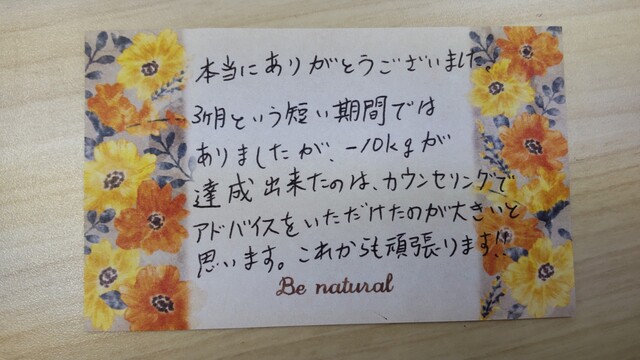 本当にありがとうございました。
3ヶ月という短い期間では
ありましたが、-10kgが
達成出来たのは、カウンセリングで
アドバイスをいただけたのが大きいと
思います。これからも頑張ります!!
Be natural